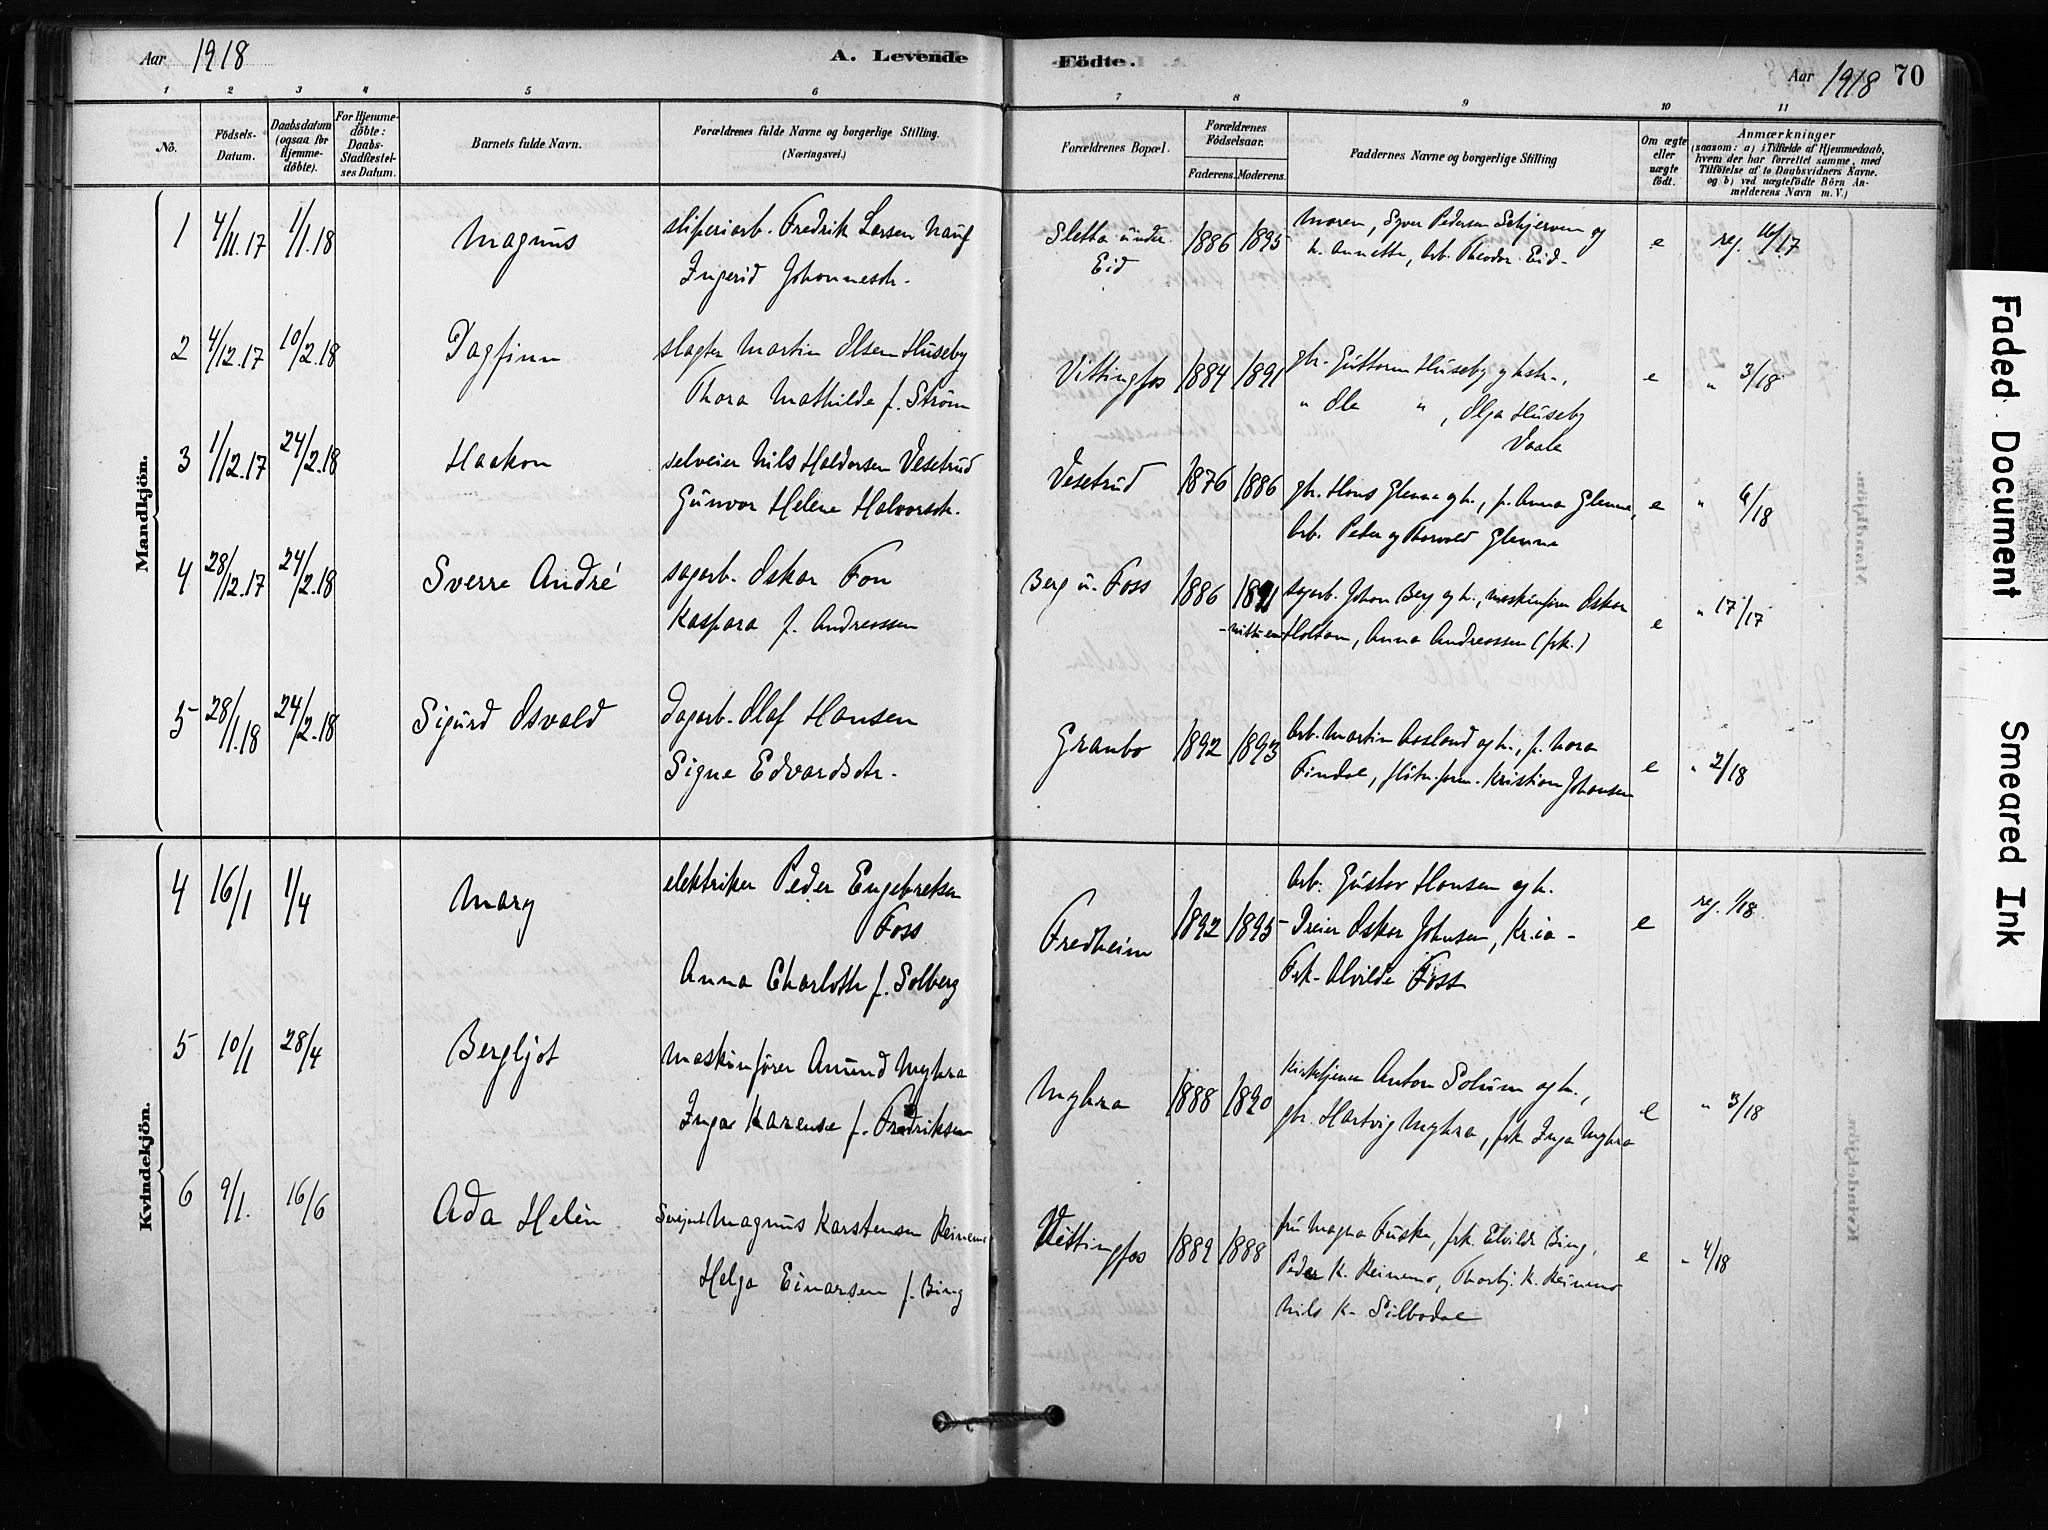 Aar 1918
A. Levende
Födte.
Aar 1918 70
1 2 3 4 5 6 7 8 9 10 11
No.
Födsels-
Datum.
Daabsdatum
(ogsaa for
Hjemme-
døbte).
For Hjemme-
døbte:
Daabs-
Stadfæstel-
ses Datum.
Barnets fulde Navn.
Forældrenes fulde Navne og borgerlige Stilling.
(Næringsvei.)
Forældrenes Bopæl.
Forældrenes
Födselsaar.
Faderens. Moderens.
Faddernes Navne og borgerlige Stilling
Om ægte
eller
uægte
födt.
Anmærkninger
(saasom: a) i Tilfælde af Hjemmedaab,
hvem der har forrettet samme, med
Tilföielse af to Daabsvidners Navne.
og b) ved uægtefödte Börn An-
melderens Navn m. V.)
Mandkjön.
1 4/11.17 1/1.18 Magnus
sliperiarb. Fredrik Larsen
Ingerid Johannesdr.
Sletta under
Eid
1886 1895
Maren, Syver Pedersen Skjerven og
h. Annette, Arb. Theodor Eid.
e reg. /17
2 4/12.17 10/2.18 Dagfinn
slagter Martin Olsen Huseby
Thora Mathilde f. Strøm
Vittingfos 1884 1891
gbr. Guttorm Huseby og hstr.,
" Ole " , Olga Huseby
Vaale
e " 3/18
3 1/12.17 24/2.18 Haakon
selveier Nils Haldorsen Vesetrud
Gunvor Helene Halvorsdr.
Vesetrud 1876 1886
gbr. Hans Glenne og h., f. Anna Glenne,
Arb. Peder og Thorvald Glenne
e " 6/18
4 28/12.17 24/2.18 Sverre André
sagarb. Oskar Fon
Kaspara f. Andreassen
Berg u. Foss 1886 1891
sagarb. Johan Berg og h., maskinform Oskar
-nitti en Holtan, Anna Andreassen (frk.)
e " 17/17
5 28/1.18 24/2.18 Sigurd Osvald
dagarb. Olaf Hansen
Signe Edvardsdr.
Granbo 1892 1893
Arb. Martin Aasland og h., f. Nora
Findal, fløtn.form. Kristian Johansen
e " 2/18
Kvindekjön.
4 16/1 1/4 Mary
elektriker Peder Engebretsen
Foss
Anna Charlotte f. Solberg
Fredheim 1892 1895
Arb. Gustav Hansen og h.
- Dreier Oskar Johnsen, Kr.ia -
Frk. Alvilde Foss
e reg. 1/18
5 10/1 28/4 Bergljot
maskinfører Amund Myhra
Inga Karense f. Fredriksen
Myhra 1888 1890
Kirketjener Anton Solum og h.,
gbr. Hartvig Myhra, frk. Inga Myhra
e " 3/18
6 9/1. 16/6 Ada Helén
Magnus Karstensen Reinemo
Helga Einarsen f. Bing
Vittingfos 1889 1888
fru Magna Fuske, frk. Elvilde Bing,
Peder K. Reinemo, Thorbj. K. Reinemo
Nils K. Silbodal
e " 4/18
Faded Document
Smeared Ink